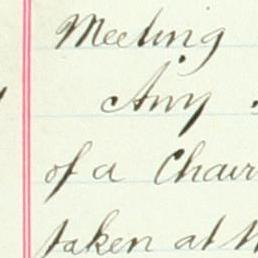 Meeting
Any
of a Chair
taken at th